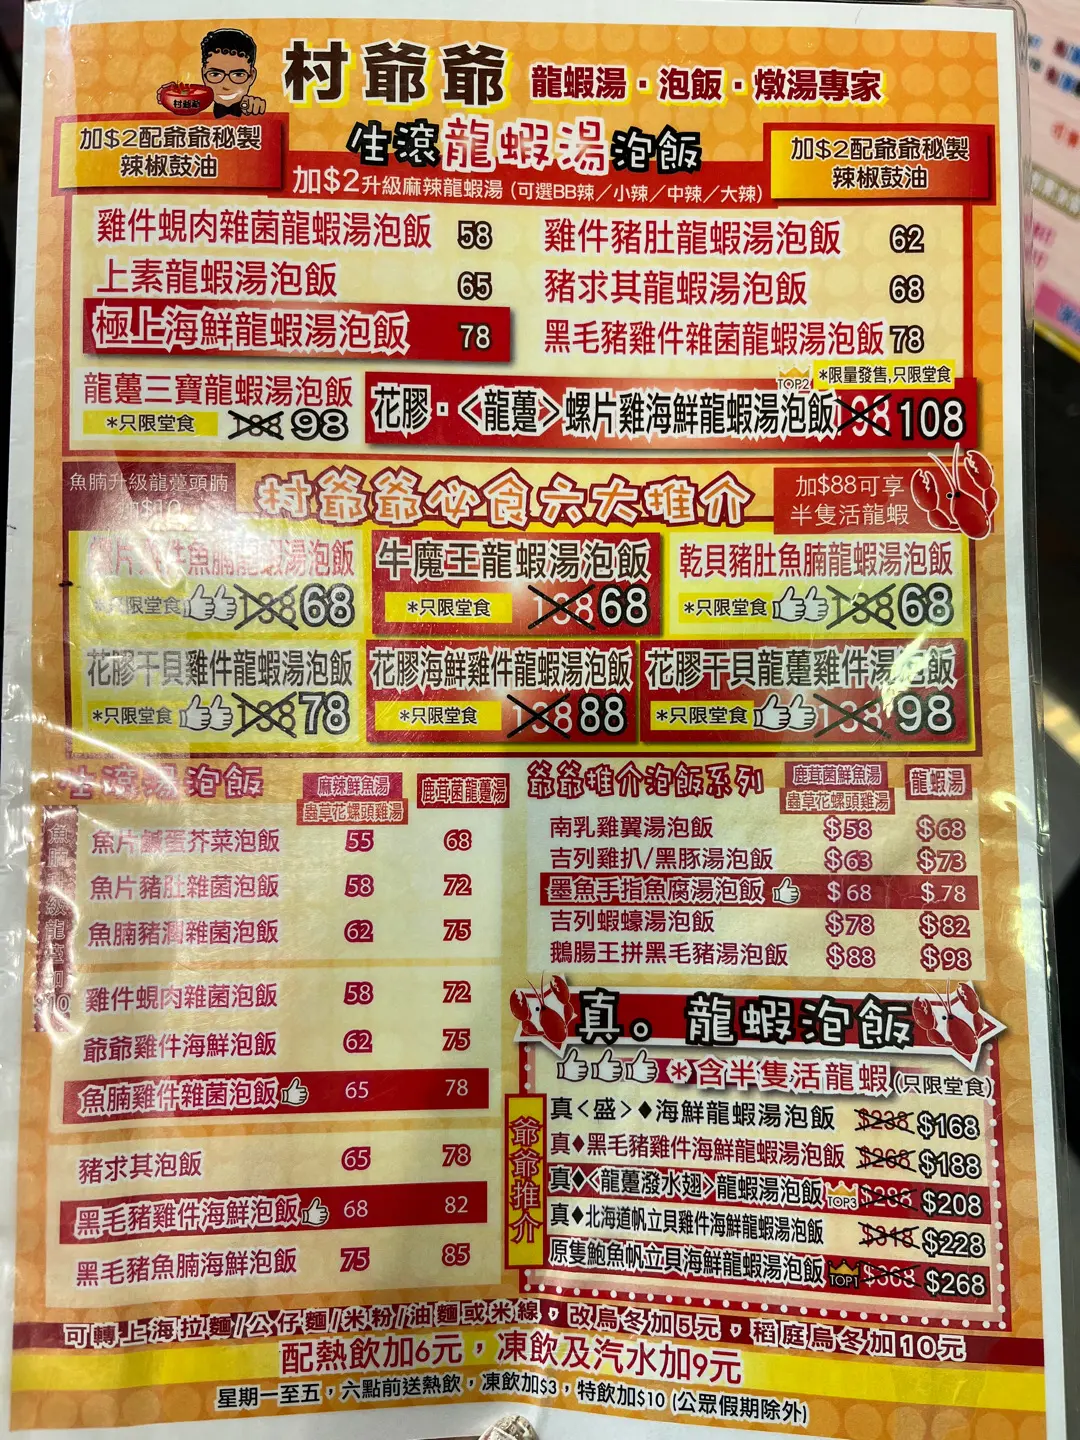 村爺爺 龍蝦湯·泡飯·燉湯專家
加$2配爺爺秘製
辣椒鼓油
生滾龍蝦湯泡飯
加$2配爺爺秘製
辣椒鼓油
加$2升級麻辣龍蝦湯 (可選BB辣／小辣／中辣／大辣)
雞件蜆肉雜菌龍蝦湯泡飯 58
雞件豬肚龍蝦湯泡飯 62
上素龍蝦湯泡飯 65
豬求其龍蝦湯泡飯 68
極上海鮮龍蝦湯泡飯 78
黑毛豬雞件雜菌龍蝦湯泡飯 78
龍躉三寶龍蝦湯泡飯
*只限堂食 98
TOP2 *限量發售,只限堂食
花膠·<龍躉>螺片雞海鮮龍蝦湯泡飯 198 108
魚腩升級龍躉頭腩
加$10
村爺爺必食六大推介
加$88可享
半隻活龍蝦
片雞件魚腩龍蝦湯泡飯
*只限堂食 68
牛魔王龍蝦湯泡飯
*只限堂食 68
乾貝豬肚魚腩龍蝦湯泡飯
*只限堂食 68
花膠干貝雞件龍蝦湯泡飯
*只限堂食 78
花膠海鮮雞件龍蝦湯泡飯
*只限堂食 88
花膠干貝龍躉雞件湯泡飯
*只限堂食 98
生滾湯泡飯
麻辣鮮魚湯
蟲草花螺頭雞湯
鹿茸菌龍躉湯
魚腩升級龍躉加10
魚片鹹蛋芥菜泡飯 55 68
魚片豬肚雜菌泡飯 58 72
魚腩豬潤雜菌泡飯 62 75
雞件蜆肉雜菌泡飯 58 72
爺爺雞件海鮮泡飯 62 75
魚腩雞件雜菌泡飯 65 78
豬求其泡飯 65 78
黑毛豬雞件海鮮泡飯 68 82
黑毛豬魚腩海鮮泡飯 75 85
爺爺推介泡飯系列
鹿茸菌鮮魚湯
蟲草花螺頭雞湯
龍蝦湯
南乳雞翼湯泡飯 $58 $68
吉列雞扒/黑豚湯泡飯 $63 $73
墨魚手指魚腐湯泡飯 $68 $78
吉列蝦蠔湯泡飯 $78 $82
鵝腸王拼黑毛豬湯泡飯 $88 $98
真。龍蝦泡飯
*含半隻活龍蝦(只限堂食)
爺爺推介
真<盛>♦海鮮龍蝦湯泡飯 $238 $168
真♦黑毛豬雞件海鮮龍蝦湯泡飯 $268 $188
真♦<龍躉潑水翅>龍蝦湯泡飯 TOP3 $288 $208
真♦北海道帆立貝雞件海鮮龍蝦湯泡飯 $318 $228
原隻鮑魚帆立貝海鮮龍蝦湯泡飯 TOP1 $368 $268
可轉上海拉麵/公仔麵/米粉/油麵或米線，改烏冬加5元，稻庭烏冬加10元
配熱飲加6元，凍飲及汽水加9元
星期一至五，六點前送熱飲，凍飲加$3，特飲加$10 (公眾假期除外)